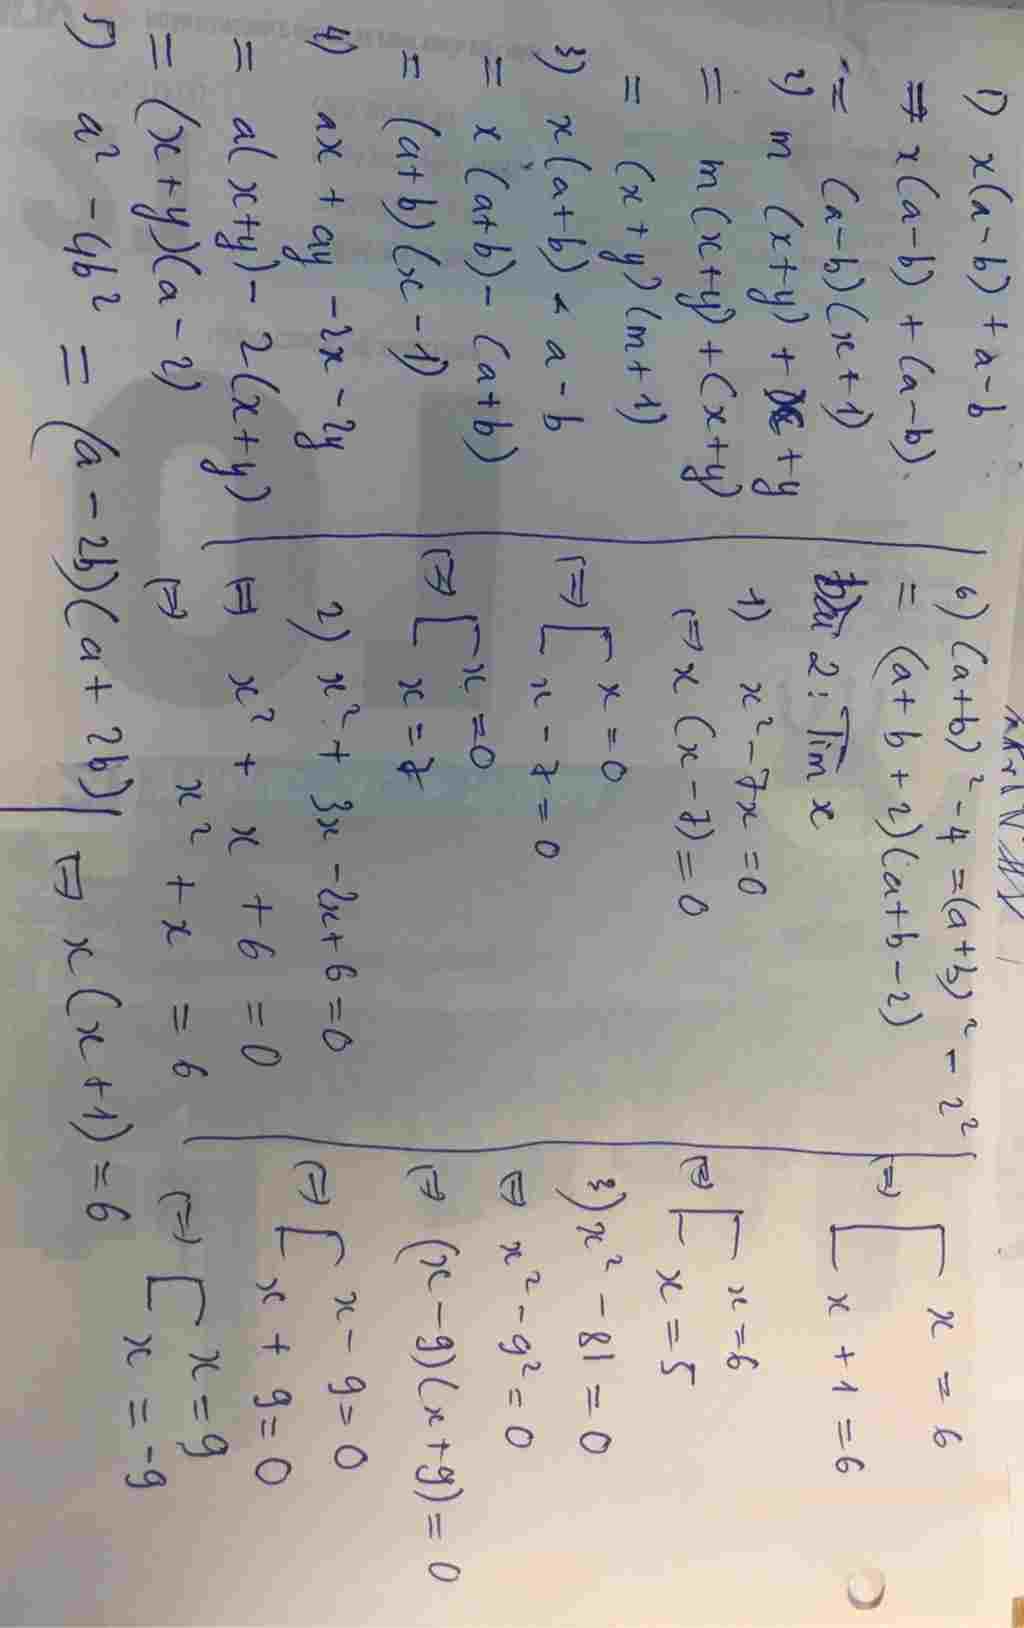 1) x(a-b) + a-b
⇒ x(a-b) + (a-b)
= (a-b)(x+1)
2) m (x+y) + x+y
= m(x+y) + (x+y)
= (x+y)(m+1)
3) x(a+b) - a-b
= x(a+b) - (a+b)
= (a+b)(x-1)
4) ax + ay - 2x - 2y
= a(x+y) - 2(x+y)
= (x+y)(a-2)
5) a² - 4b² = (a-2b)(a+2b)
6) (a+b)² - 4 = (a+b)² - 2²
= (a+b+2)(a+b-2)
bài 2: Tìm x
1) x² - 7x = 0
⇔ x(x-7) = 0
⇔ [ x = 0
x - 7 = 0
⇔ [ x = 0
x = 7
2) x² + 3x - 2x + 6 = 0
⇔ x² + x + 6 = 0
⇔ x² + x = 6
⇔ x(x+1) = 6
⇔ [ x = 6
x + 1 = 6
⇔ [ x = 6
x = 5
3) x² - 81 = 0
⇔ x² - 9² = 0
⇔ (x-9)(x+9) = 0
⇔ [ x - 9 = 0
x + 9 = 0
⇔ [ x = 9
x = -9